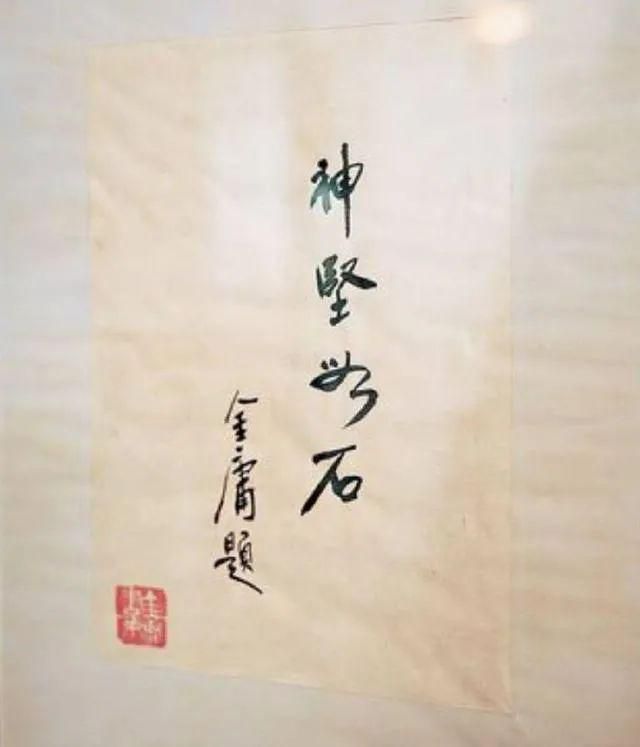 神堅石
金庸題